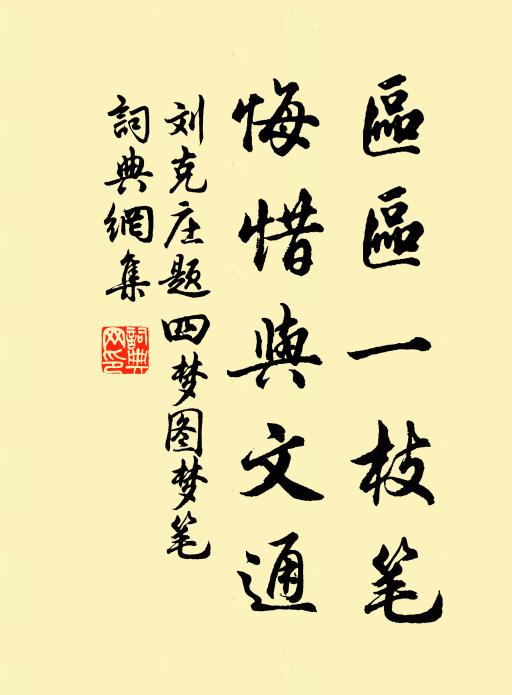 區區一枝笔
悔惜與文通
刘克庄题四梦图梦笔
詞典網集
詞典网印